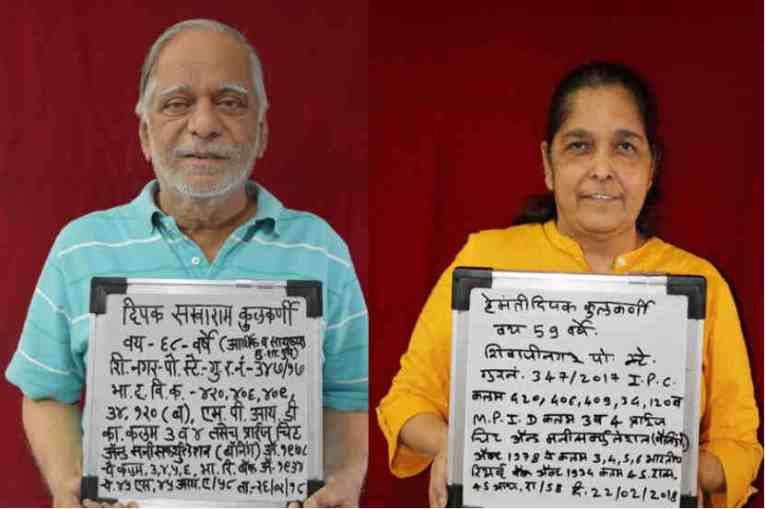 दिपक सखाराम कुलकर्णी
वय - ६८ - वर्षे (आर्थिक व सायबर
गु. शा. पुणे)
शि. नगर - पो. स्टे - गु. र. नं - ३४७/१७
भा. द. वि. क. - ४२०, ४०६, ४०९,
३४, १२० (ब), एम. पी. आय. डी
का. कलम ३ व ४ तसेच प्राईज चिट
अॅन्ड मनीसर्क्युलेशन (बॅनिंग) अॅ. १९७८
चे कलम, ३, ४, ५, ६, भा. रि. बँक अॅ. १९३४
चे ४५ एस, ४५ आय. ए/५८ ता. - २६/०२/१८
हेमंती दिपक कुलकर्णी
वय 59 वर्षे.
शिवाजीनगर पो. स्टे.
गुरनं. 347/2017 I.P.C.
कलम 420, 406, 409, 34, 120ब
M.P.I.D कलम 3 व 4 प्राईज
चिट अॅन्ड मनीसर्क्युलेशन (बॅनिंग)
अॅक्ट 1978 चे कलम 3, 4, 5, 6 भारतीय
रिझर्व्ह बँक अॅक्ट 1934 कलम 45.
45 आय. ए/58 दि. 22/02/2018